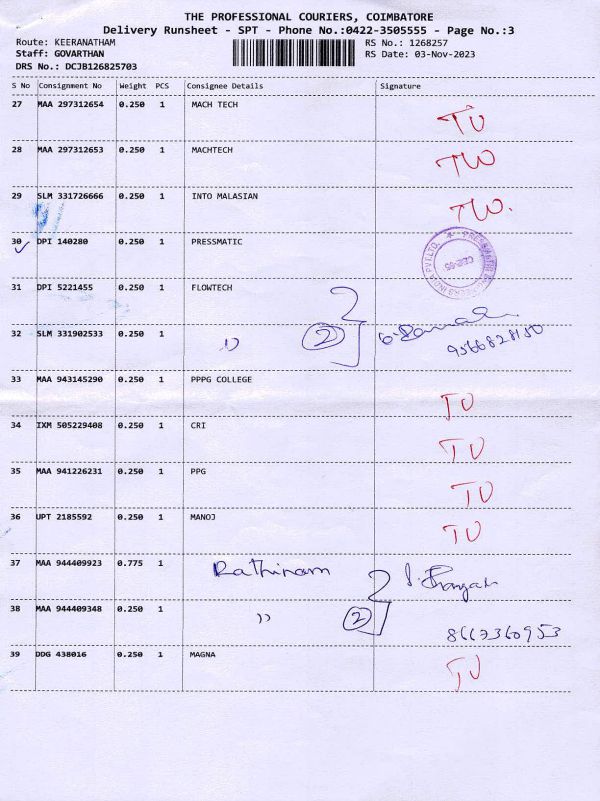 THE PROFESSIONAL COURIERS, COIMBATORE
Delivery Runsheet - SPT - Phone No.:0422-3505555 - Page No.:3
Route: KEERANATHAM RS No.: 1268257
Staff: GOVARTHAN RS Date: 03-Nov-2023
DRS No.: DCJB126825703
S No Consignment No Weight PCS Consignee Details Signature
27 MAA 297312654 0.250 1 MACH TECH
TU
28 MAA 297312653 0.250 1 MACHTECH
TW
29 SLM 331726666 0.250 1 INTO MALASIAN
TW.
30 DPI 140280 0.250 1 PRESSMATIC
31 DPI 5221455 0.250 1 FLOWTECH
32 SLM 331902533 0.250 1
" 2
9566828150
33 MAA 943145290 0.250 1 PPPG COLLEGE
TU
34 IXM 505229408 0.250 1 CRI
TU
35 MAA 941226231 0.250 1 PPG
TU
36 UPT 2185592 0.250 1 MANOJ
TU
37 MAA 944409923 0.775 1 Rathinam
38 MAA 944409348 0.250 1 " 2
8667360953
39 DDG 438016 0.250 1 MAGNA
TU